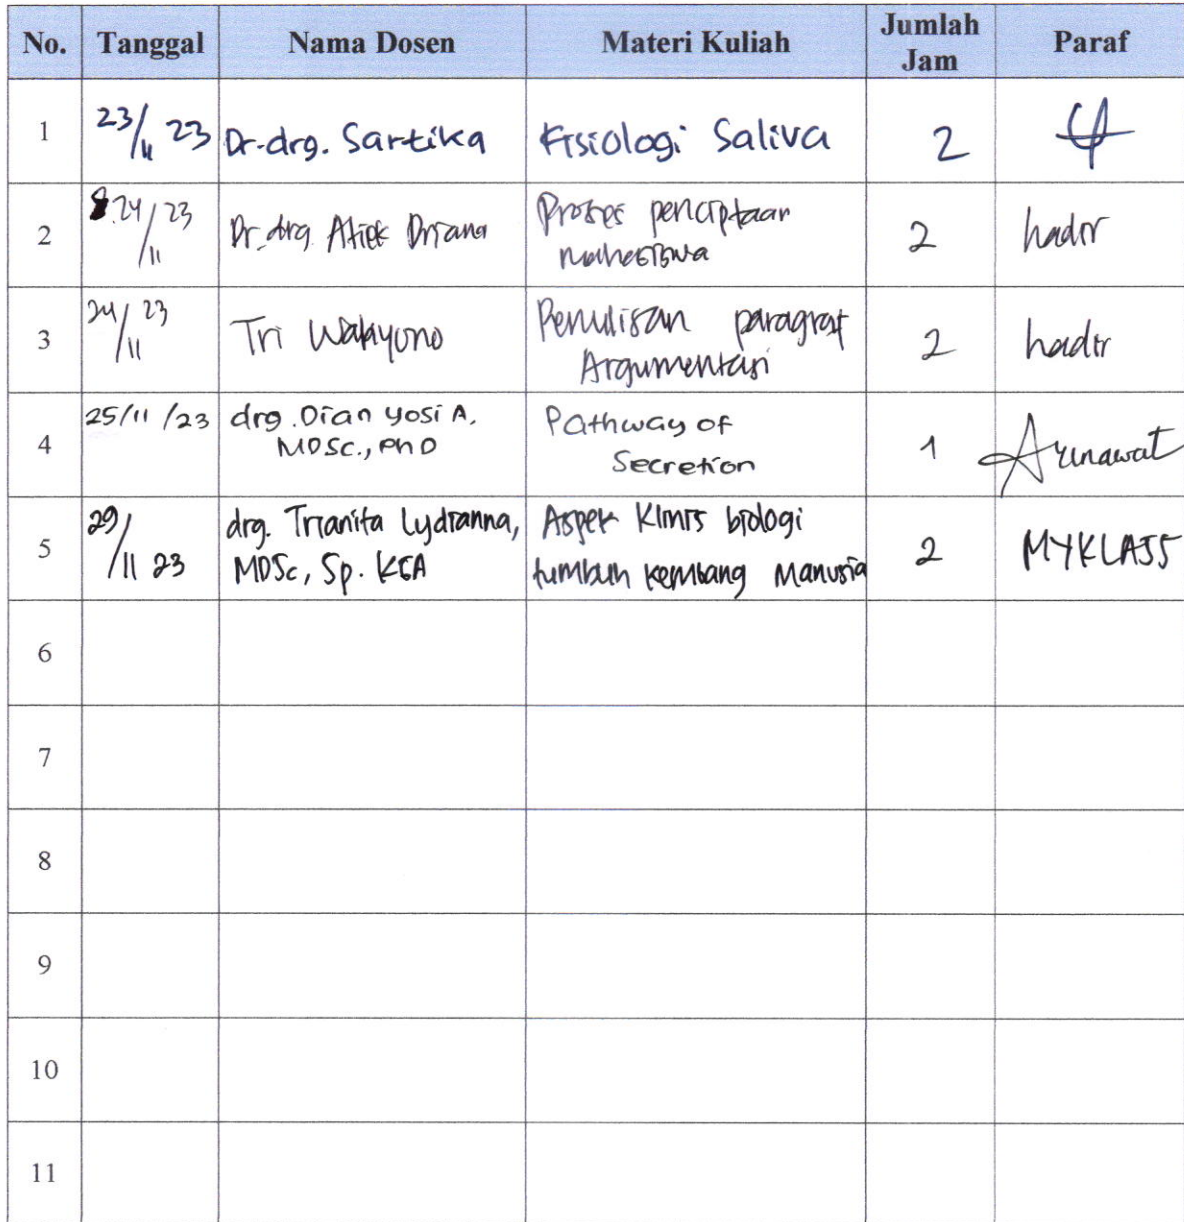 No. Tanggal Nama Dosen Materi Kuliah Jumlah Jam Paraf
1 23/11 23 Dr. drg. Sartika Fisiologi Saliva 2
2 24/11/23 Dr. drg. Atiek Driana Proses penciptaan
mahasiswa 2 hadir
3 24/11/23 Tri Wahyono Penulisan paragraf
Argumentasi 2 hadir
4 25/11/23 drg. Dian Yosi A.
MDSc., PhD Pathway of
Secretion 1
5 29/11 23 drg. Trianita Lydianna,
MDSc, Sp. KGA Aspek Klinis biologi
tumbuh kembang Manusia 2 MYKLASS
6
7
8
9
10
11